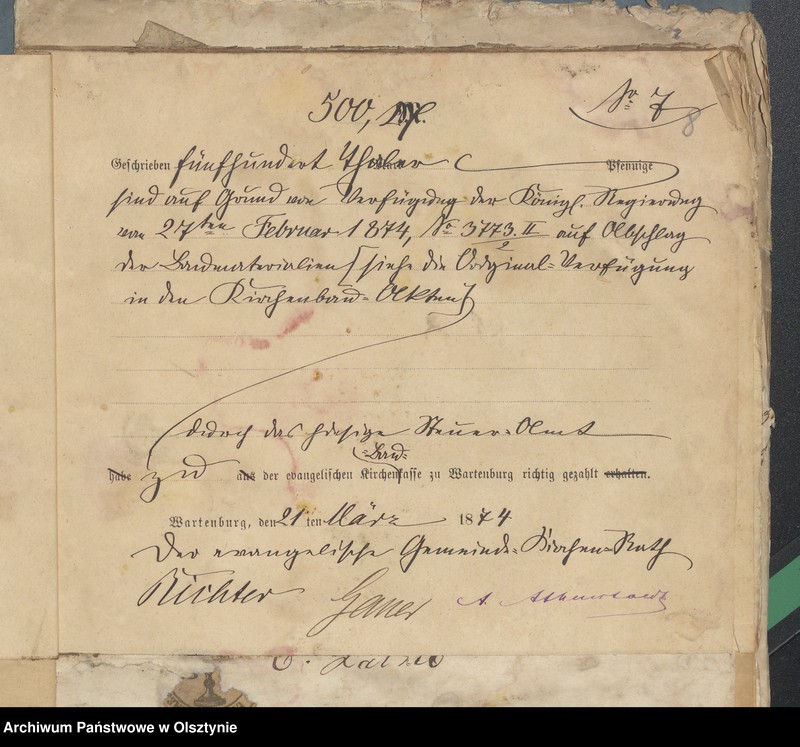 500,
No 7
8
Geschrieben fünfhundert Thaler Pfennige
sind auf Grund von Verfügung der Königl. Regierung
von 27ten Februar 1874, No 3773. II auf Abschlag
2
der Baumaterialien (siehe die Original-Verfügung
in den Kirchenbau-Akten)
durch das hiesige Steuer-Amt
=Bau=
habe zu aus der evangelischen Kirchenkasse zu Wartenburg richtig gezahlt erhalten.
Wartenburg, den 21ten März 1874
Der evangelische Gemeinde-Kirchen-Rath
Richter
Archiwum Państwowe w Olsztynie